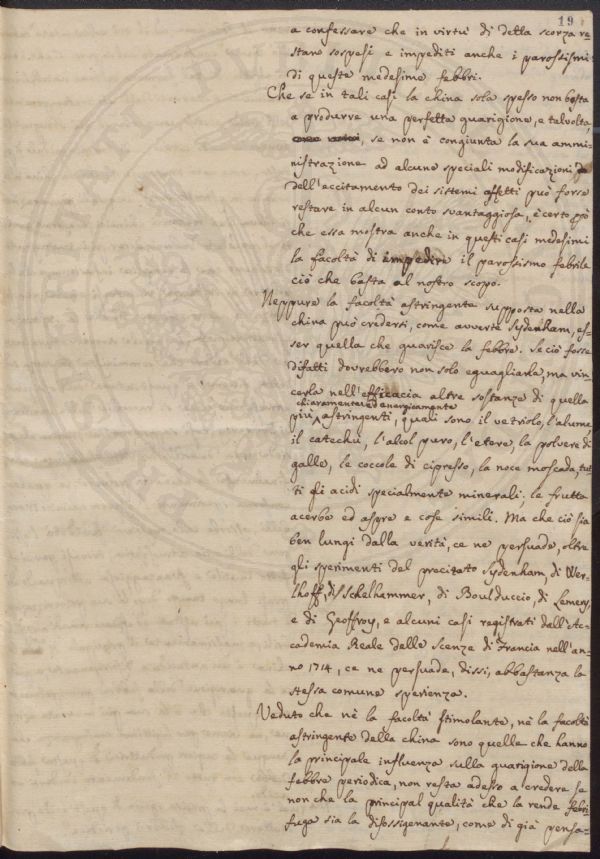 19
a confessare che in virtù di detta scorza re-
stano sospesi e impediti anche i parossismi
di queste medesime febbri.
Che se in tali casi la china sola spesso non basta
a produrre una perfetta guarigione, e talvolta
, se non è congiunta la sua ammi-
nistrazione ad alcune speciali modificazioni
dell'eccitamento dei sistemi affetti può forse
restare in alcun conto svantaggiosa, è certo però
che essa mostra anche in questi casi medesimi
la facoltà di impedire il parossismo febrile
ciò che basta al nostro scopo.
Neppure la facoltà astringente supposta nella
china può credersi, come avverte Sydenham, es-
ser quella che guarisce la febbre. Se ciò fosse
difatti dovrebbero non solo eguagliarla, ma vin-
cerla nell'efficacia altre sostanze di quella
chiaramente ed energicamente
più astringenti, quali sono il vetriolo, l'alume,
il catechù, l'alcol puro, l'etere, la polvere di
galle, le coccole di cipresso, la noce moscada, tut-
ti gli acidi specialmente minerali, le frutta
acerbe ed aspre e cose simili. Ma che ciò sia
ben lungi dalla verità, ce ne persuade, oltre
gli sperimenti del precitato Sydenham, di Wer-
lhoff, di Schelhammer, di Boulduccio, di Lemery,
e di Geoffroy, e alcuni casi registrati dall'Ac-
cademia Reale delle Scenze di Francia nell'an-
no 1714, ce ne persuade, dissi, abbastanza la
stessa comune sperienza.
Veduto che nè la facoltà stimolante, nè la facoltà
astringente della china sono quelle che hanno
la principale influenza sulla guarigione della
febbre periodica, non resta adesso a credere se
non che la principal qualità che la rende febri-
fuga sia la disossigenante, come di già pensa-